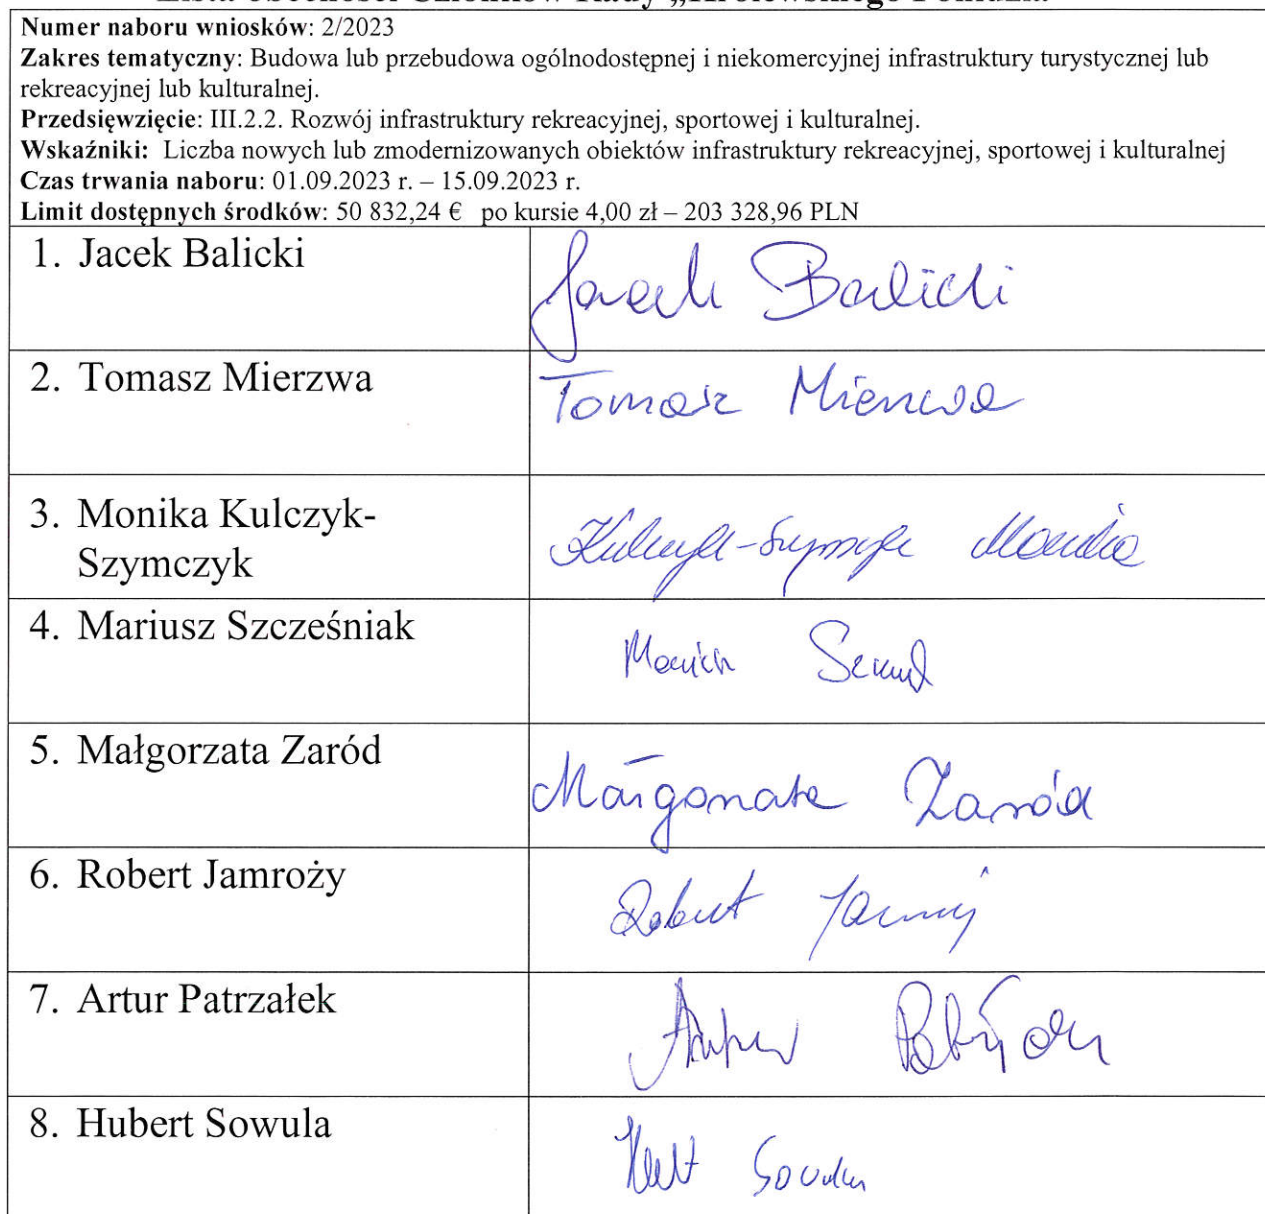 Numer naboru wniosków: 2/2023
Zakres tematyczny: Budowa lub przebudowa ogólnodostępnej i niekomercyjnej infrastruktury turystycznej lub
rekreacyjnej lub kulturalnej.
Przedsięwzięcie: III.2.2. Rozwój infrastruktury rekreacyjnej, sportowej i kulturalnej.
Wskaźniki: Liczba nowych lub zmodernizowanych obiektów infrastruktury rekreacyjnej, sportowej i kulturalnej
Czas trwania naboru: 01.09.2023 r. – 15.09.2023 r.
Limit dostępnych środków: 50 832,24 € po kursie 4,00 zł – 203 328,96 PLN
1. Jacek Balicki
Jacek Balicki
2. Tomasz Mierzwa
Tomasz Mierzwa
3. Monika Kulczyk-
Szymczyk
Kulczyk-Szymczyk Monika
4. Mariusz Szcześniak
5. Małgorzata Zaród
Małgorzata Zaród
6. Robert Jamroży
Robert Jamroży
7. Artur Patrzałek
Artur Patrzałek
8. Hubert Sowula
Hubert Sowula